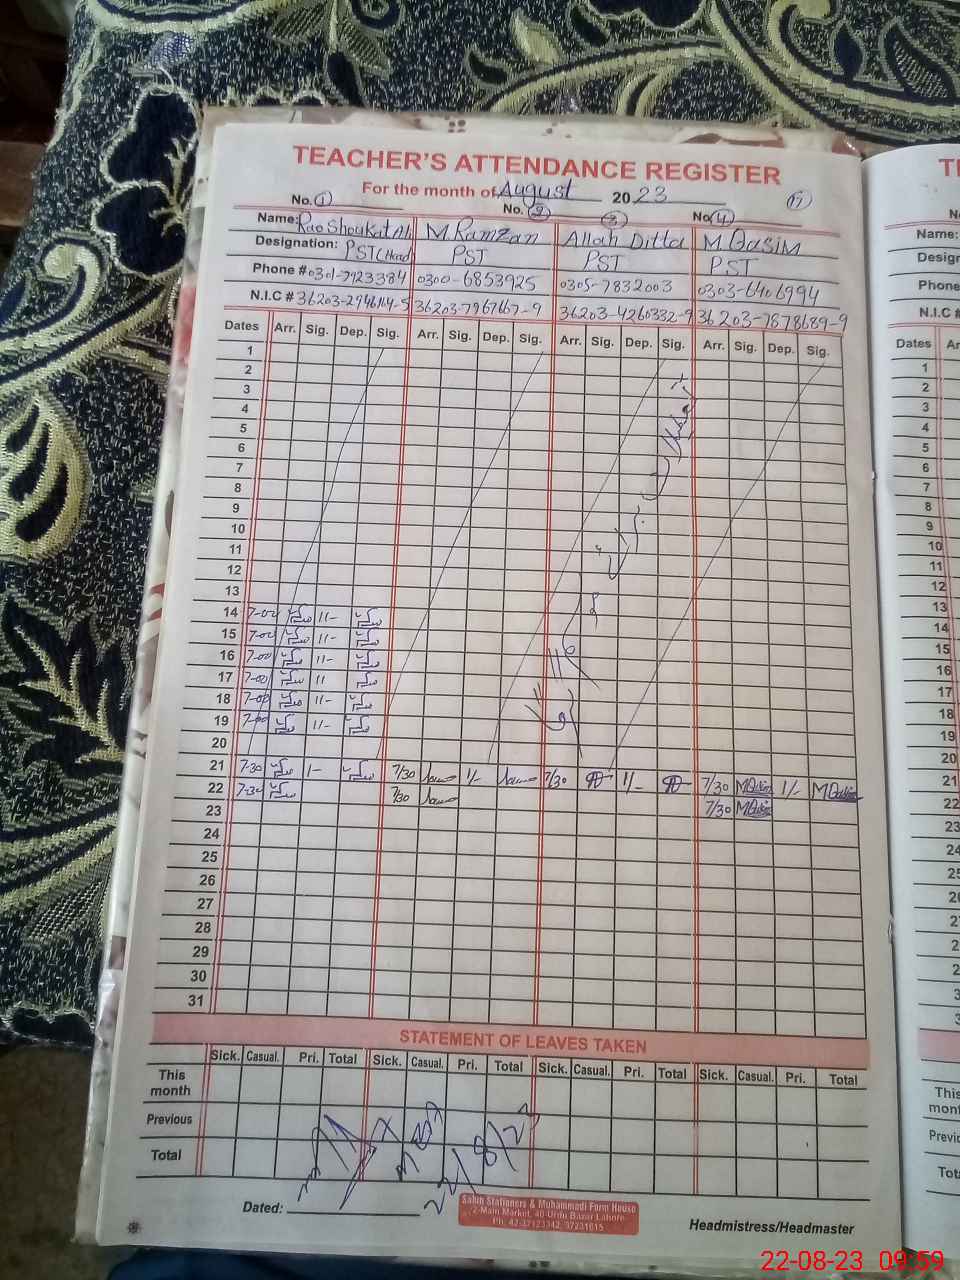 TEACHER'S ATTENDANCE REGISTER
For the month of August 2023
17
No. 1 No. 2 3 No. 4
Name: Rao Shoukat Ali M. Ramzan Allah Ditta M Qasim
Designation: PST (Head) PST PST PST
Phone # 0301-7923384 0300-6853925 0305-7832003 0303-6406994
N.I.C # 36203-7967667-9 36203-4260332-9 36203-7878689-9
Dates Arr. Sig. Dep. Sig. Arr. Sig. Dep. Sig. Arr. Sig. Dep. Sig. Arr. Sig. Dep. Sig.
1
2
3
4
5
6
7
8
9
10
11
12
13
14 7-00 11-
15 7-00 11-
16 7-00 11-
17 7-00 11
18 7-00 11-
19 7-00 11-
20
21 7-30 1- 7/30 1/- 7/30 1/- 7/30 MQasim 1/- MQasim
22 7-30 7/30 7/30 MQasim
23
24
25
26
27
28
29
30
31
STATEMENT OF LEAVES TAKEN
Sick. Casual. Pri. Total Sick. Casual. Pri. Total Sick. Casual. Pri. Total Sick. Casual. Pri. Total
This month
Previous
Total
22/8/23
Dated:
Salim Stationers & Muhammadi Form House
2-Main Market, 40-Urdu Bazar Lahore
Ph. 42-37123342, 37231615
Headmistress/Headmaster
Name:
Phone
N.I.C #
Dates
1
2
3
4
5
6
7
8
9
10
11
12
13
14
15
16
17
18
19
20
21
22
23
22-08-23 09:59